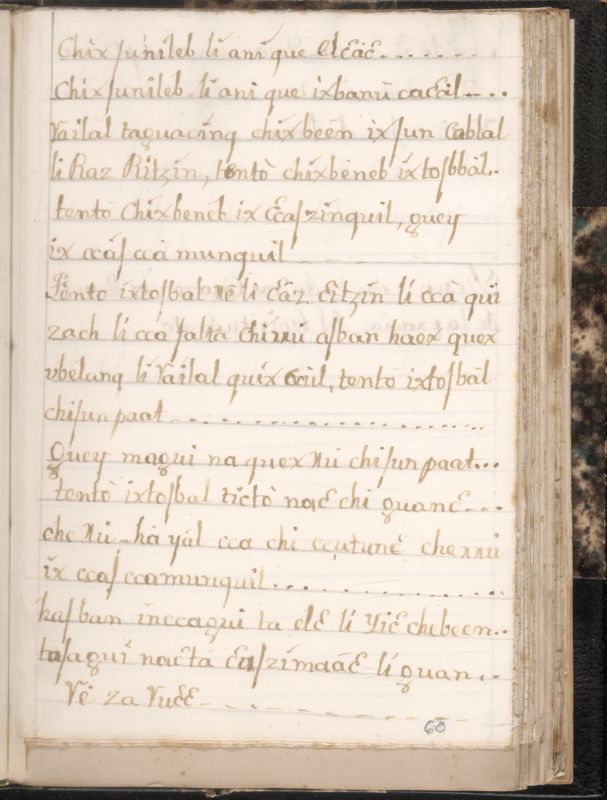 Chixſunileb li anique ɛcaɛ
Chixſunileb li anique ixbanú caɛal
Vailal taguacinq chixbeen ixſun Cablal
li Raz Ritzin, tento chixbeneb ixtoſbbal
tento Chixbeneb ix ɛcaſzinquil, guey
ix ccaſ cca munquil
Tento ixtoſbal ré li ɛaz ɛitzin li cca qui
zach li cca ſalta chirrú aſban haex quex
vbelanq li Vailal quix ccul, tento ixtoſbal
chiſun paat
Guey magui na quex rú chiſun paat
tento ixtoſbal tictò naɛ chi guanɛ
che rú ha yal cca chi ccutunɛ cherrú
ix ccaſ ccamunquil
kaſban inccagui ta elɛ li yiɛ chebeen
taſagui naɛta ɛuſzimaáɛ li guan
Ve za Vuɛɛ
60